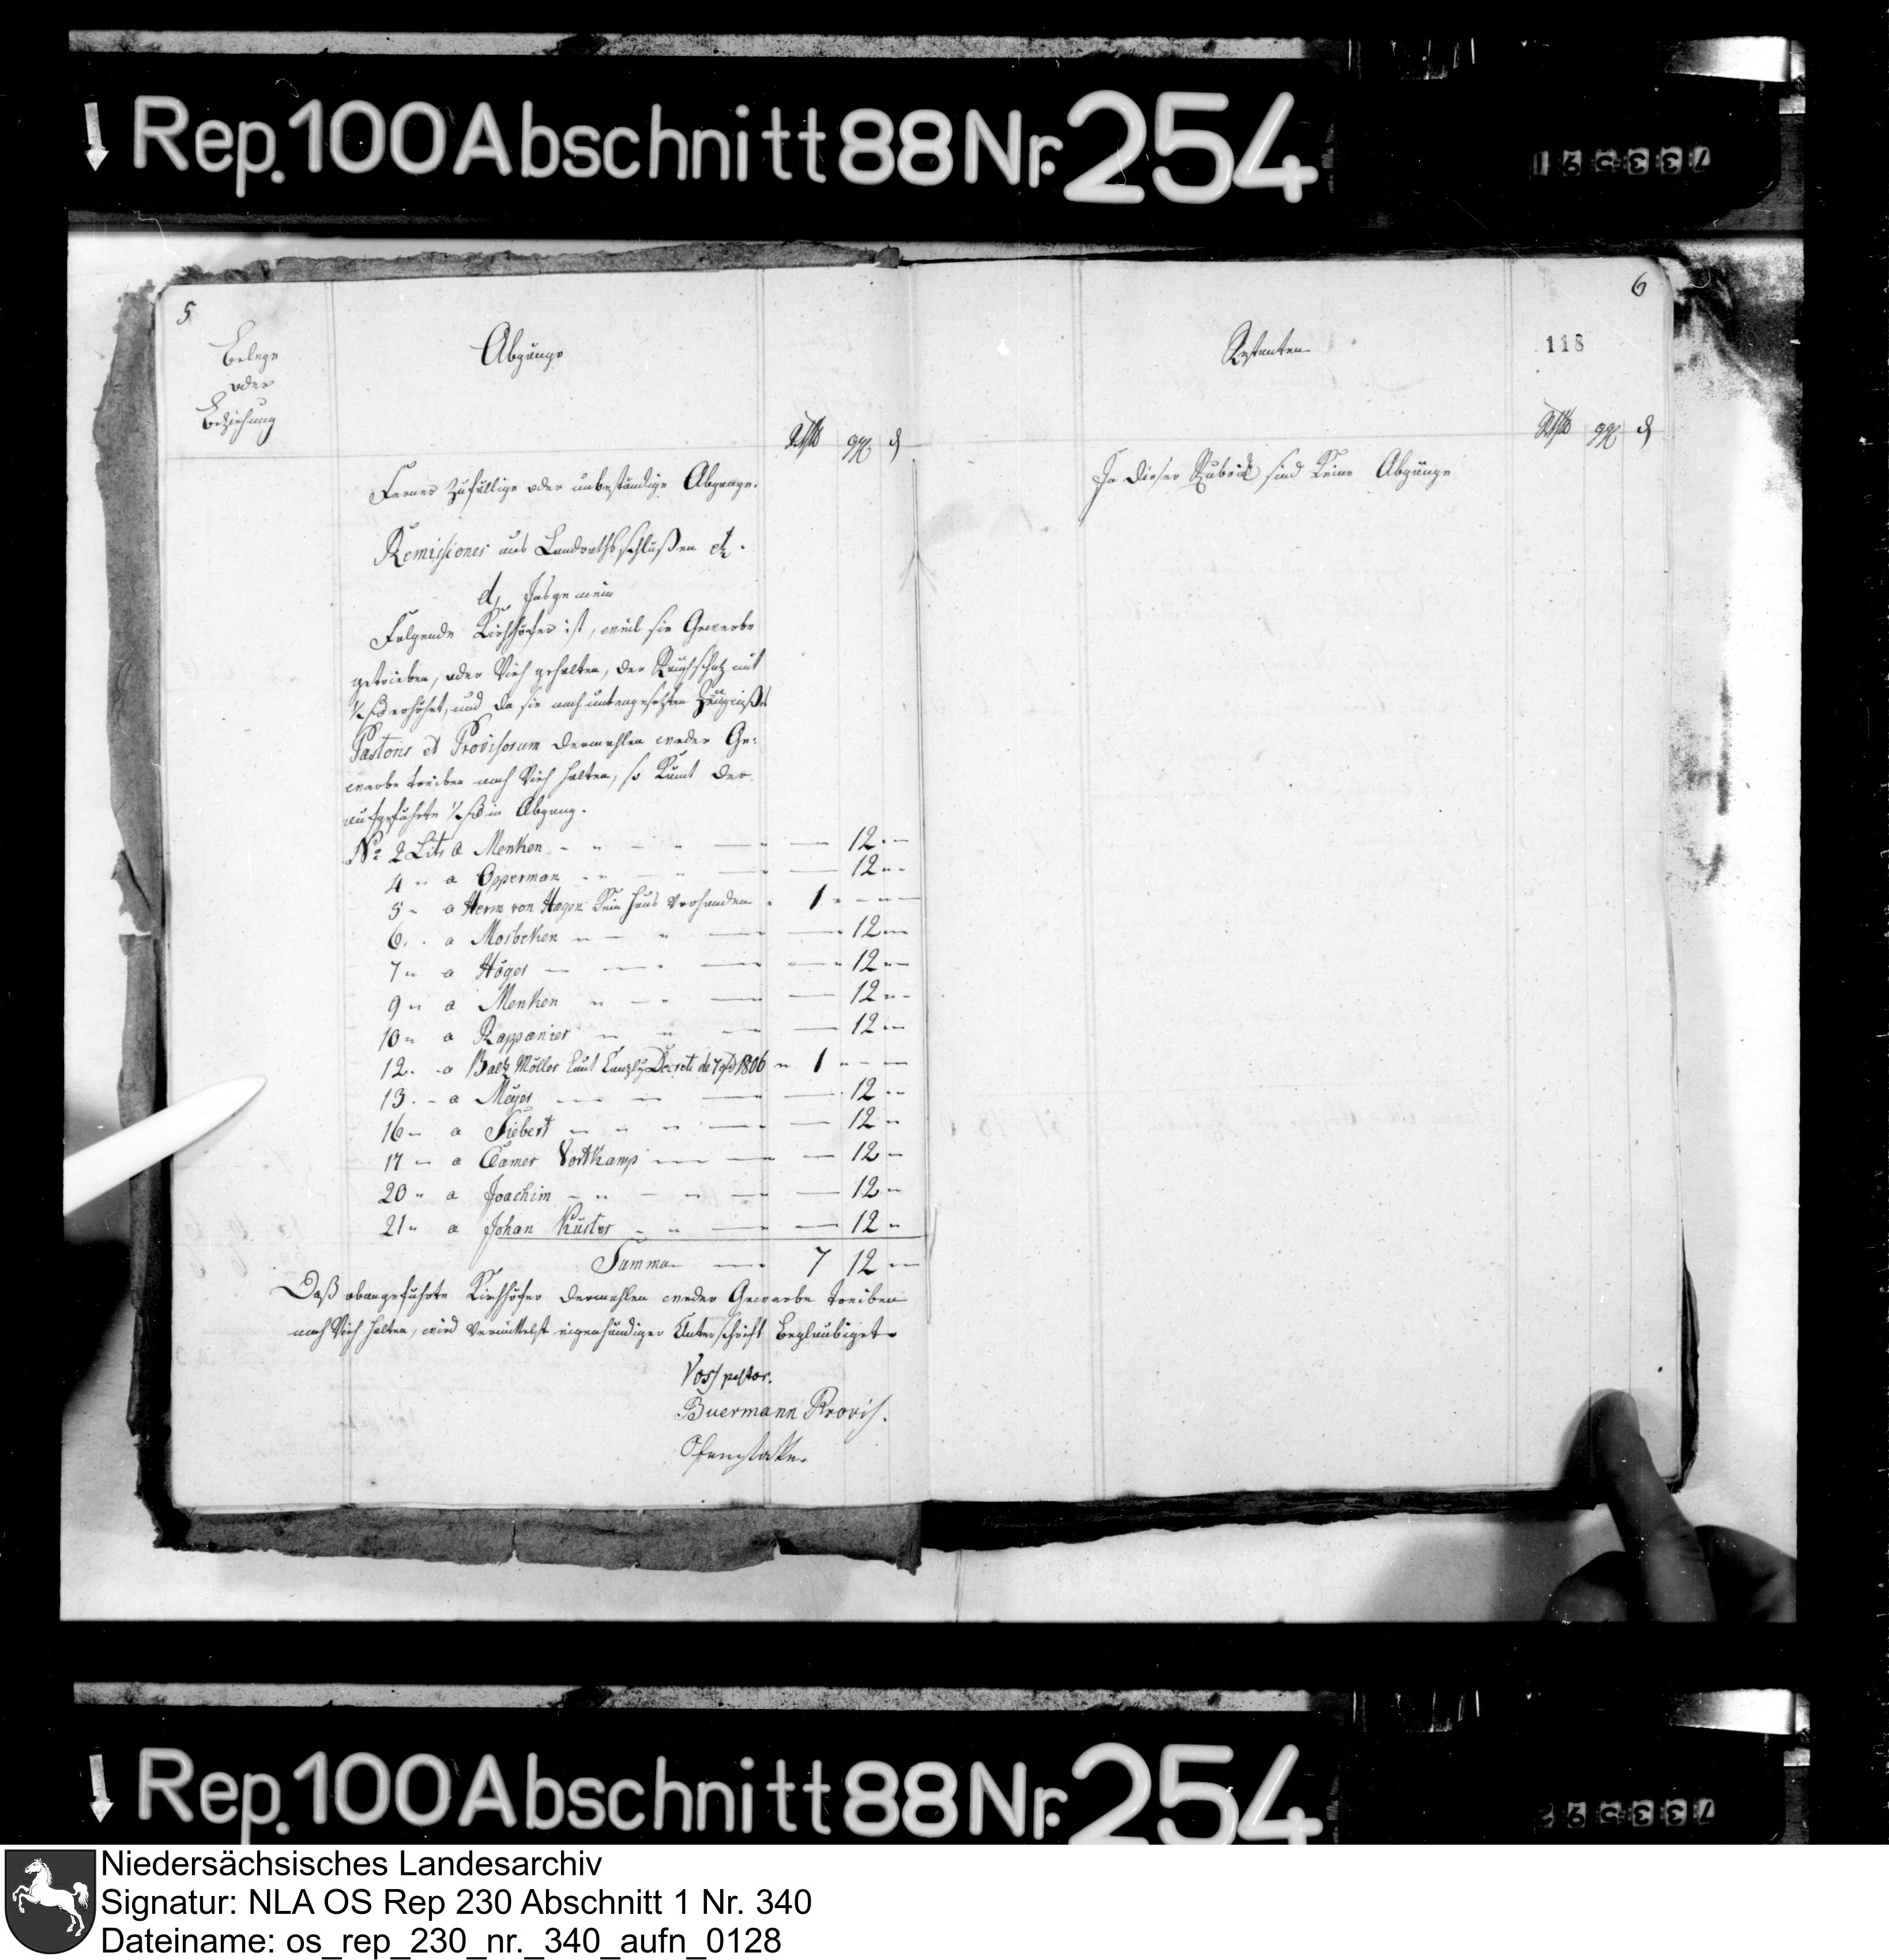 Rep. 100 Abschnitt 88 Nr. 254
733591
5
Belege
oder
Beziehung
Abgänge
Rthlr ggr d
Ferner Zufällige oder unbeständige Abgänge.
Remissiones aus Landrathsschlüßen etc.
d, Insgemein
Folgende Kirchhöfer ist, weil sie Gewerbe
getrieben, oder Vieh gehalten, der Rauchschatz mit
1/2 rthlr erhöhet, und da sie nach untengesetzten Zeugniß
Pastoris et Provisorum dermahlen weder Ge:
werbe treiben noch Vieh halten, so kömt der
aufgeführte 1/2 rthlr in Abgang.
No 2 Litr a Menken 12
4 a Opperman 12
5 a Herm von Hagen kein Haus vorhanden 1
6 a Mosbeken 12
7 a Höger 12
9 a Menken 12
10 a Rappanier 12
12 a Baltz Möller laut Canzley Decreti de 1806 1
13 a Meyer 12
16 a Siebert 12
17 a Cämer Vortkamp 12
20 a Joachim 12
21 a Johan Küster 12
Summa 7 12
Daß obangeführte Kirchhöfer dermahlen weder Gewerbe treiben
noch Vieh halten, wird vermittelst eigenhändiger Unterschrift beglaubiget
Voss pastor.
Buermann Provis.
6
118
Restanten
Rthlr ggr d
In dieser Rubrick sind keine Abgänge
Rep. 100 Abschnitt 88 Nr. 254
733592
Niedersächsisches Landesarchiv
Signatur: NLA OS Rep 230 Abschnitt 1 Nr. 340
Dateiname: os_rep_230_nr._340_aufn_0128